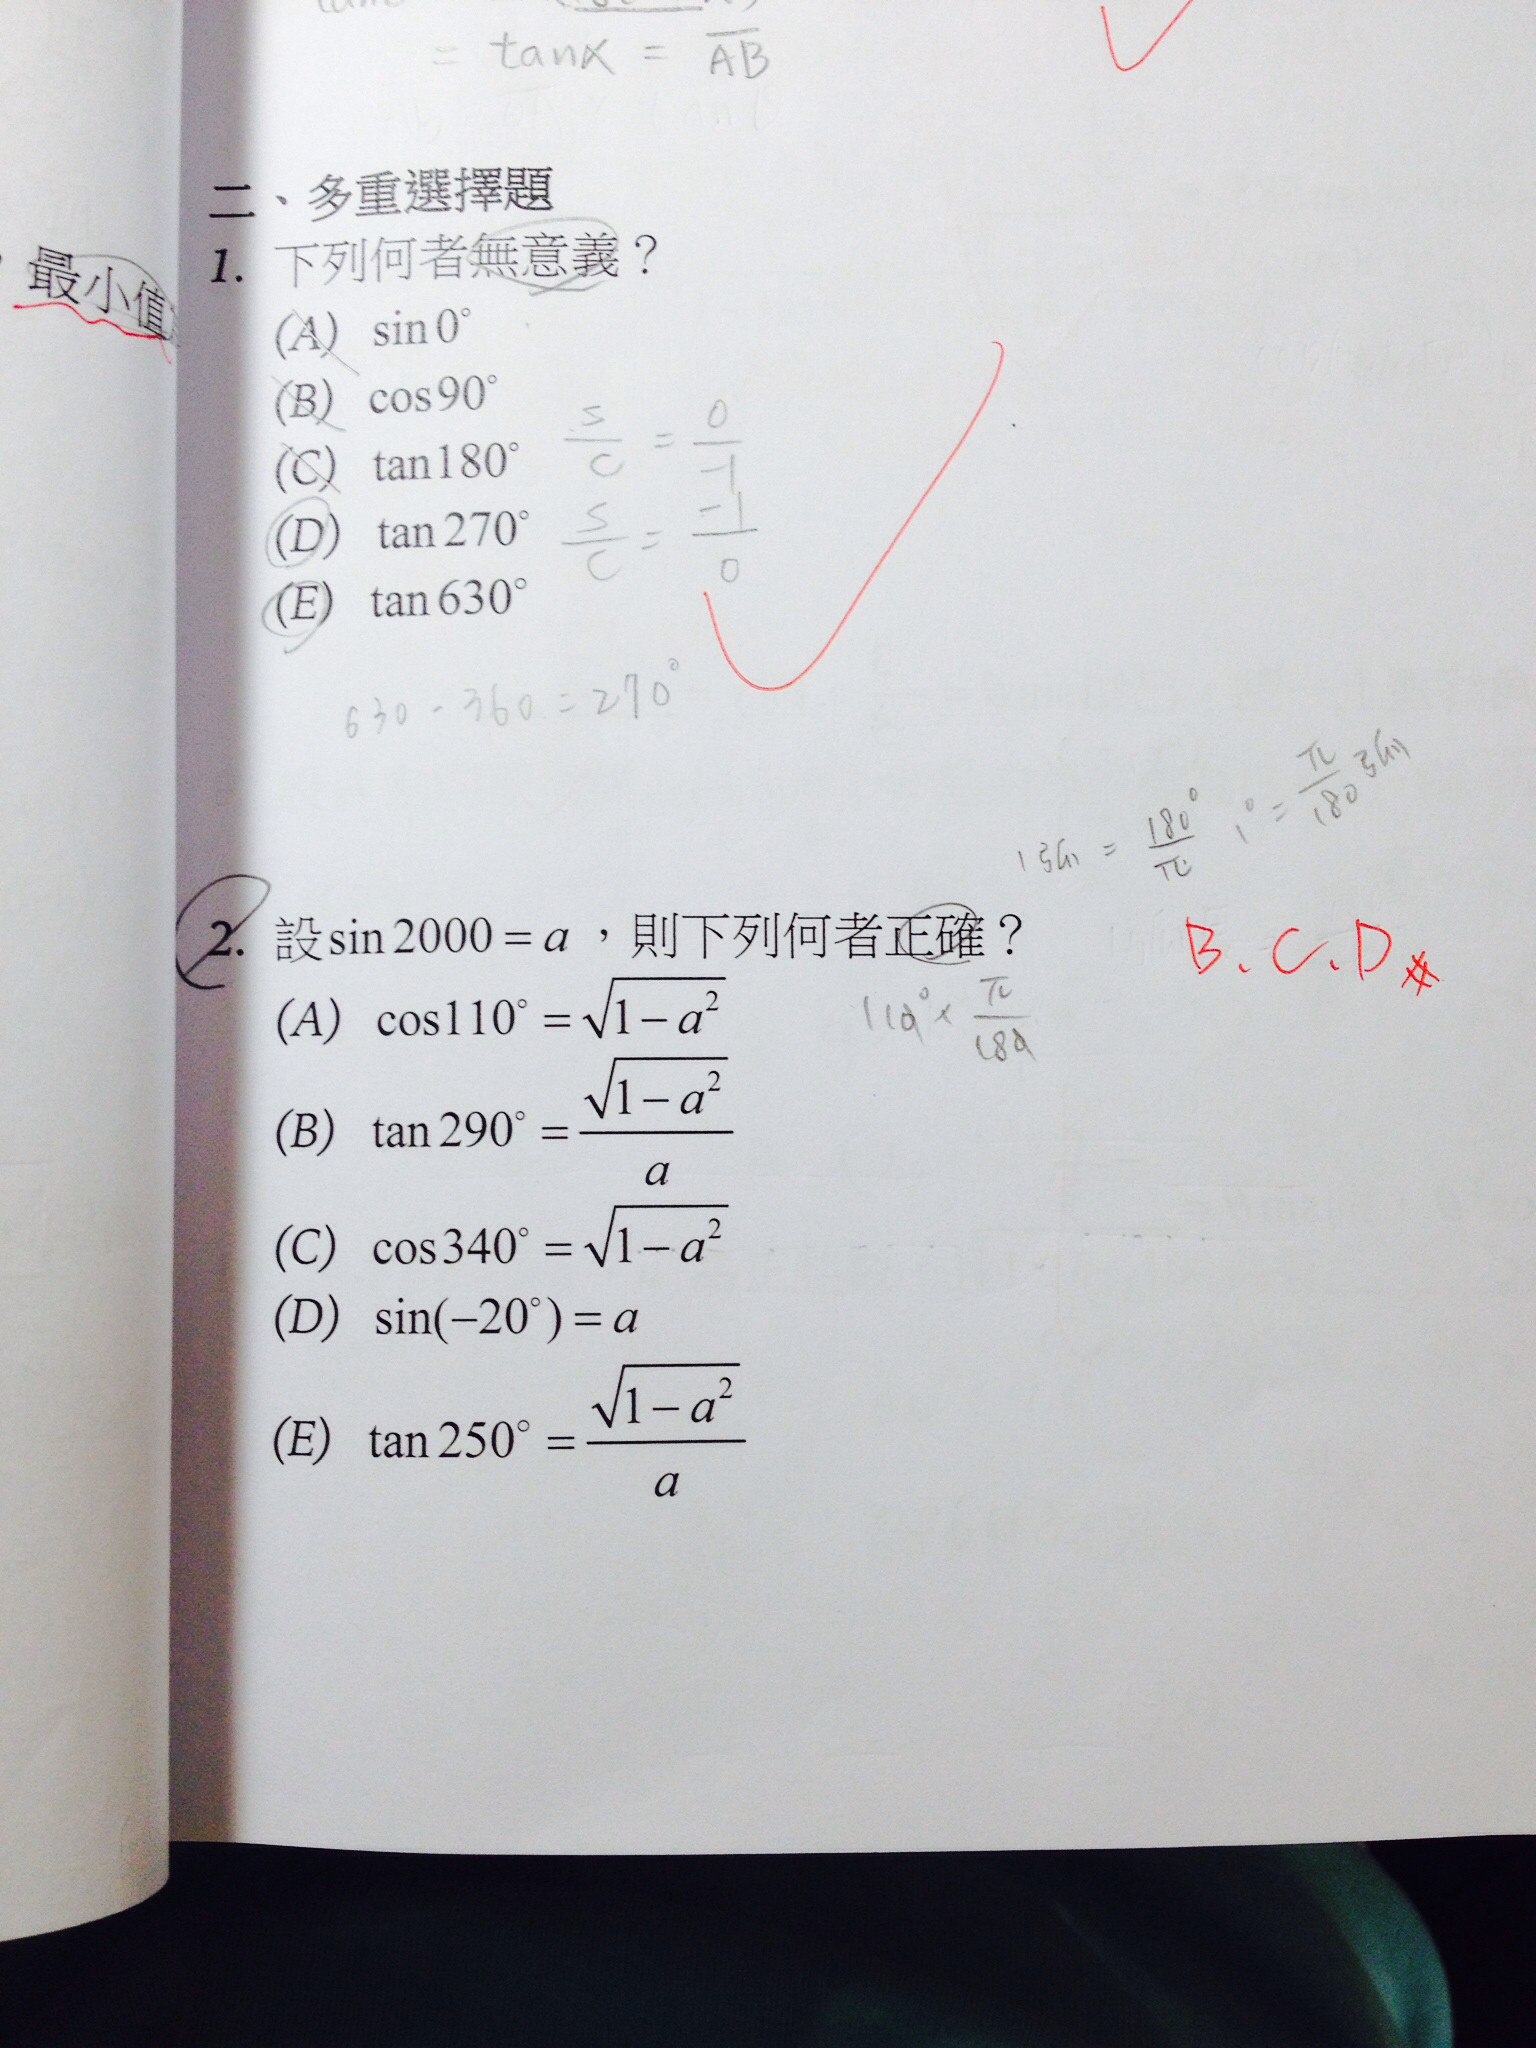 = tanα = AB
二、多重選擇題
最小值
1. 下列何者無意義？
(A) sin 0°
(B) cos 90°
(C) tan 180° s/c = 0/-1
(D) tan 270° s/c = -1/0
(E) tan 630°
630 - 360 = 270°
1弧 = 180°/π 1° = π/180 弧
2. 設 sin 2000 = a ，則下列何者正確？ B.C.D
(A) cos110° = √(1-a²) 110° × π/180
(B) tan 290° = √(1-a²)/a
(C) cos 340° = √(1-a²)
(D) sin(-20°) = a
(E) tan 250° = √(1-a²)/a